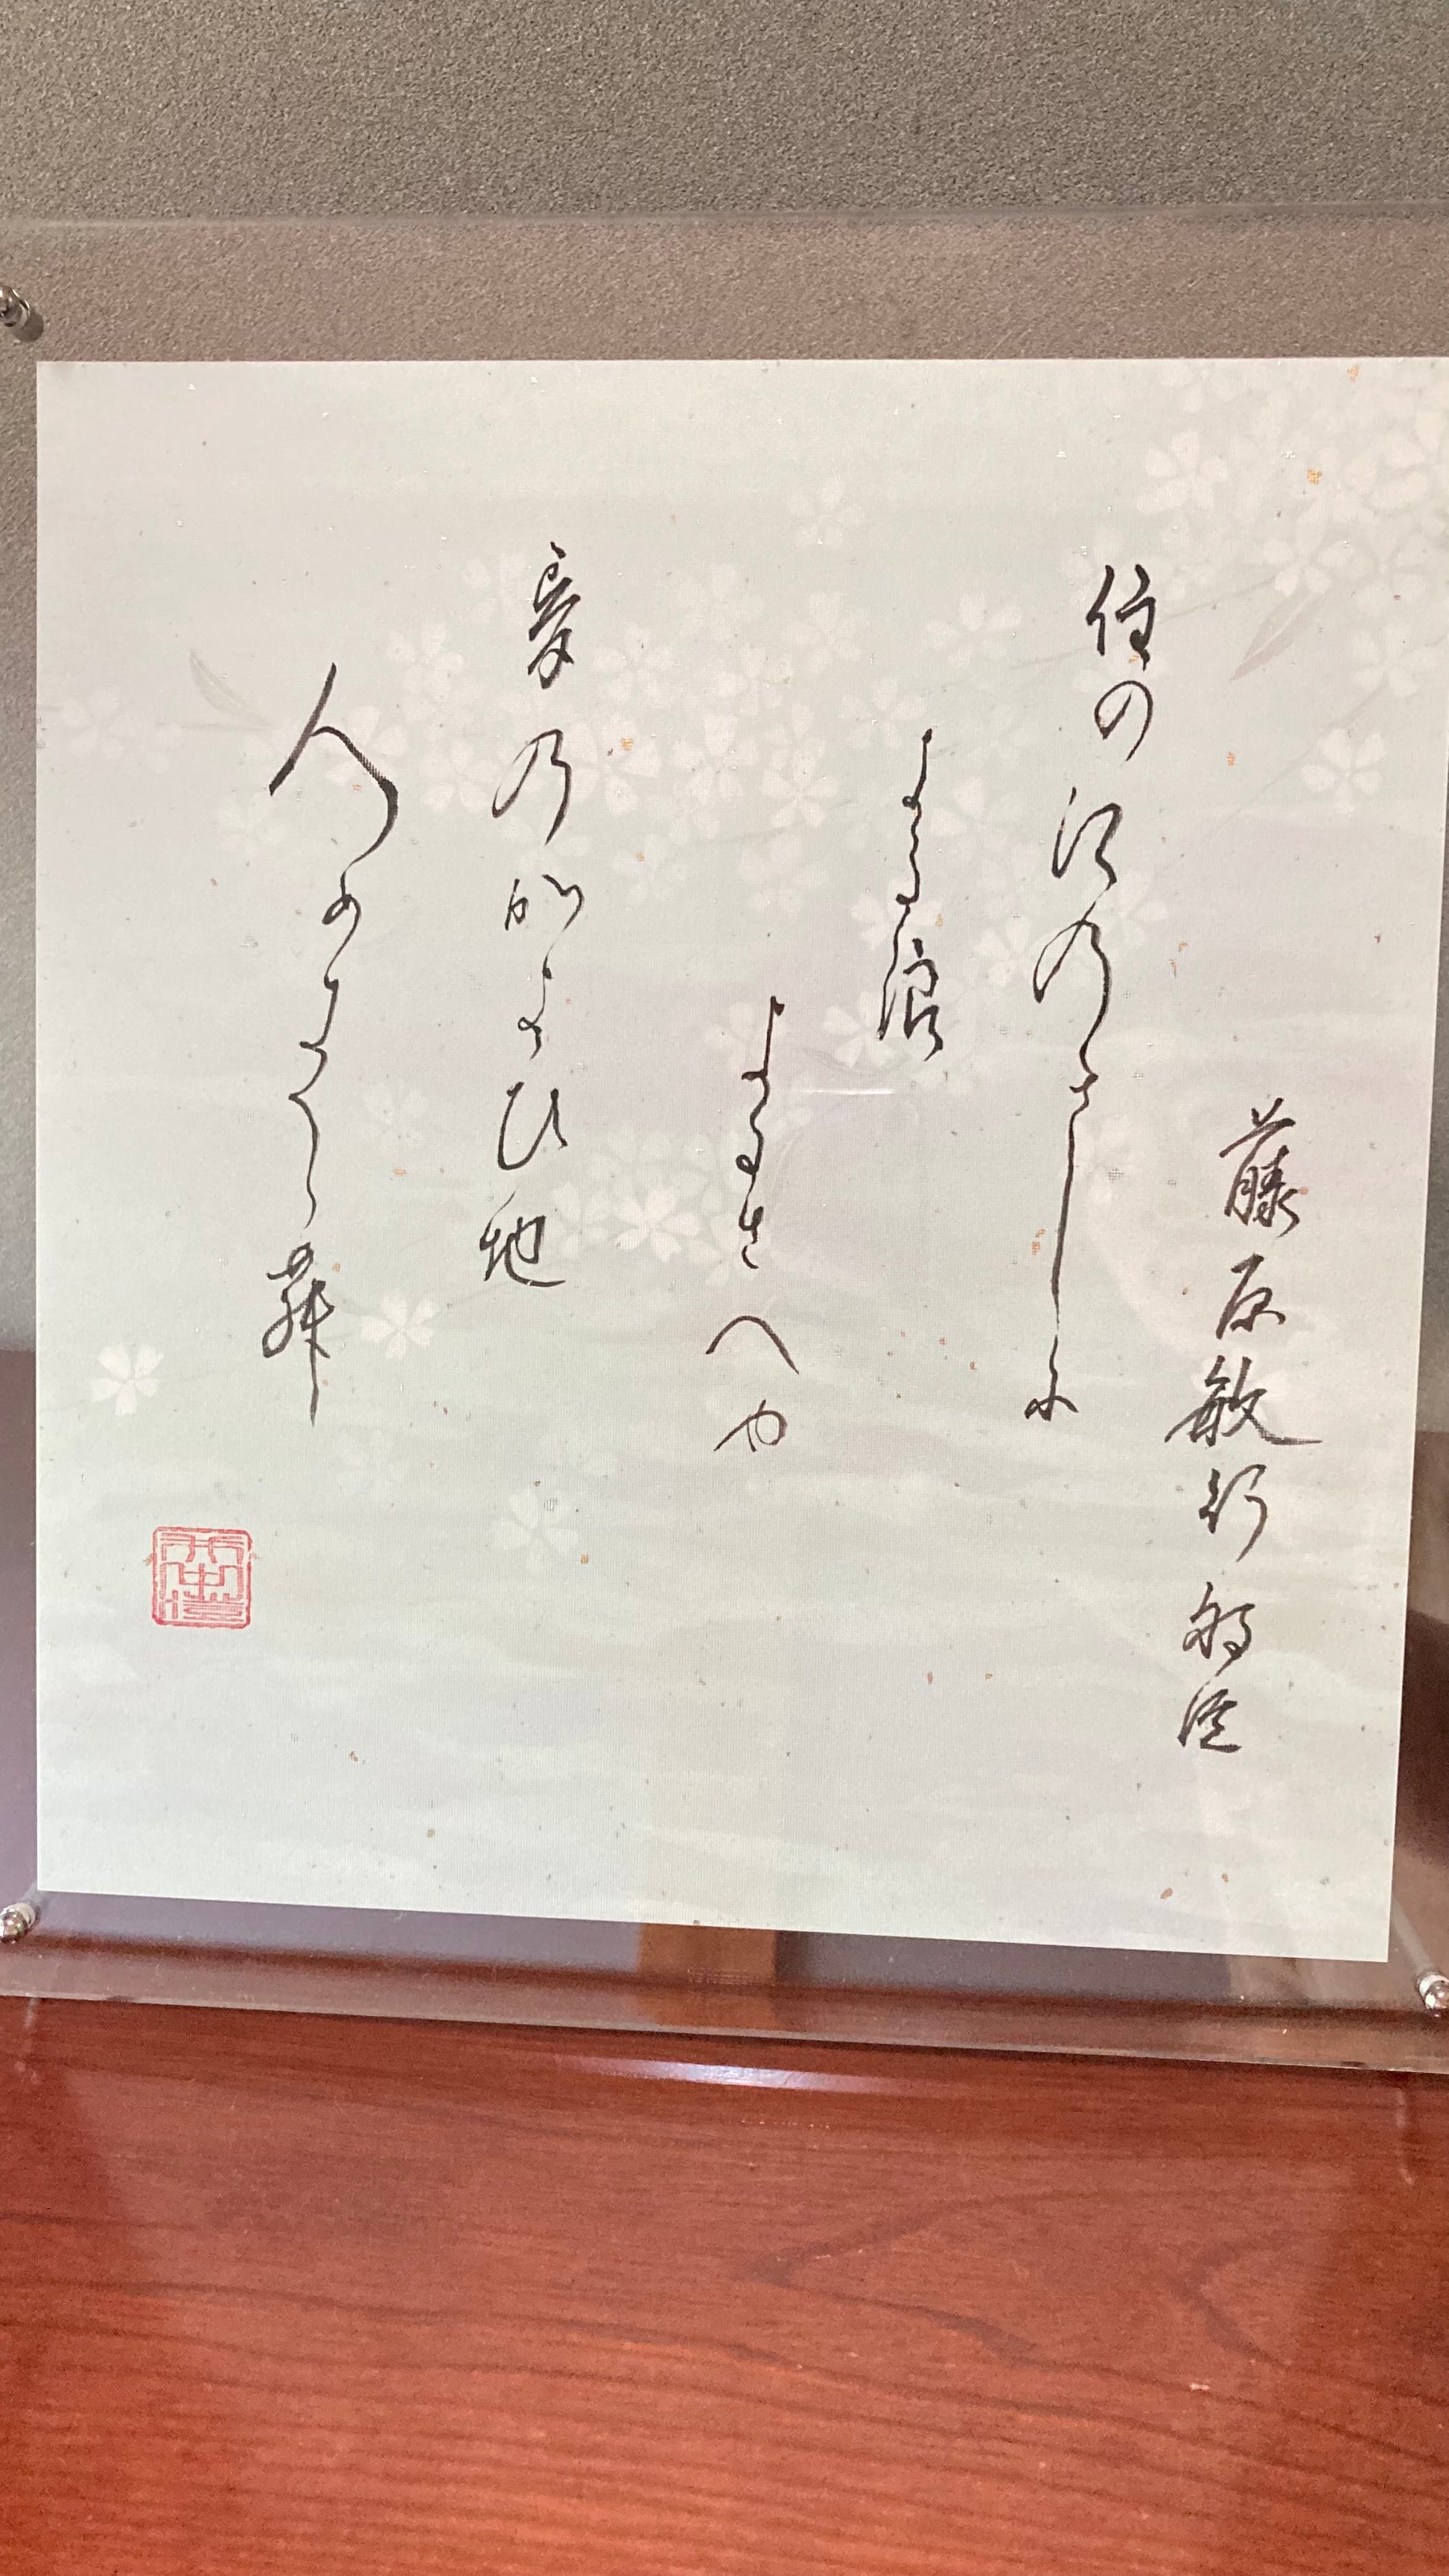 藤原敏行朝臣
住の江乃きしに
よる浪
よるさへや
夢乃かよひ地
人めよくら舞